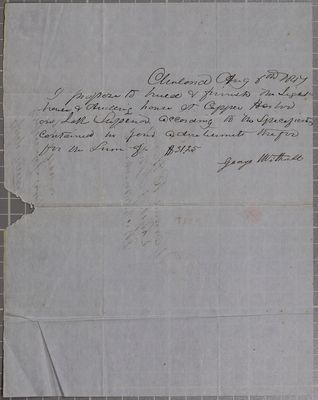 Cleveland Aug 6th 1847
I propose to build & furnish the Light
house & dwelling house at Copper Harbor
on Lake Superior according to the Specifications
contained in your advertisement therefor
for the Sum of $3125